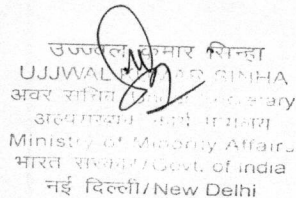 उज्ज्वल कुमार सिन्हा
UJJWAL KUMAR SINHA
अवर सचिव / Under Secretary
अल्पसंख्यक कार्य मंत्रालय
Ministry of Minority Affairs
भारत सरकार/Govt. of India
नई दिल्ली/New Delhi